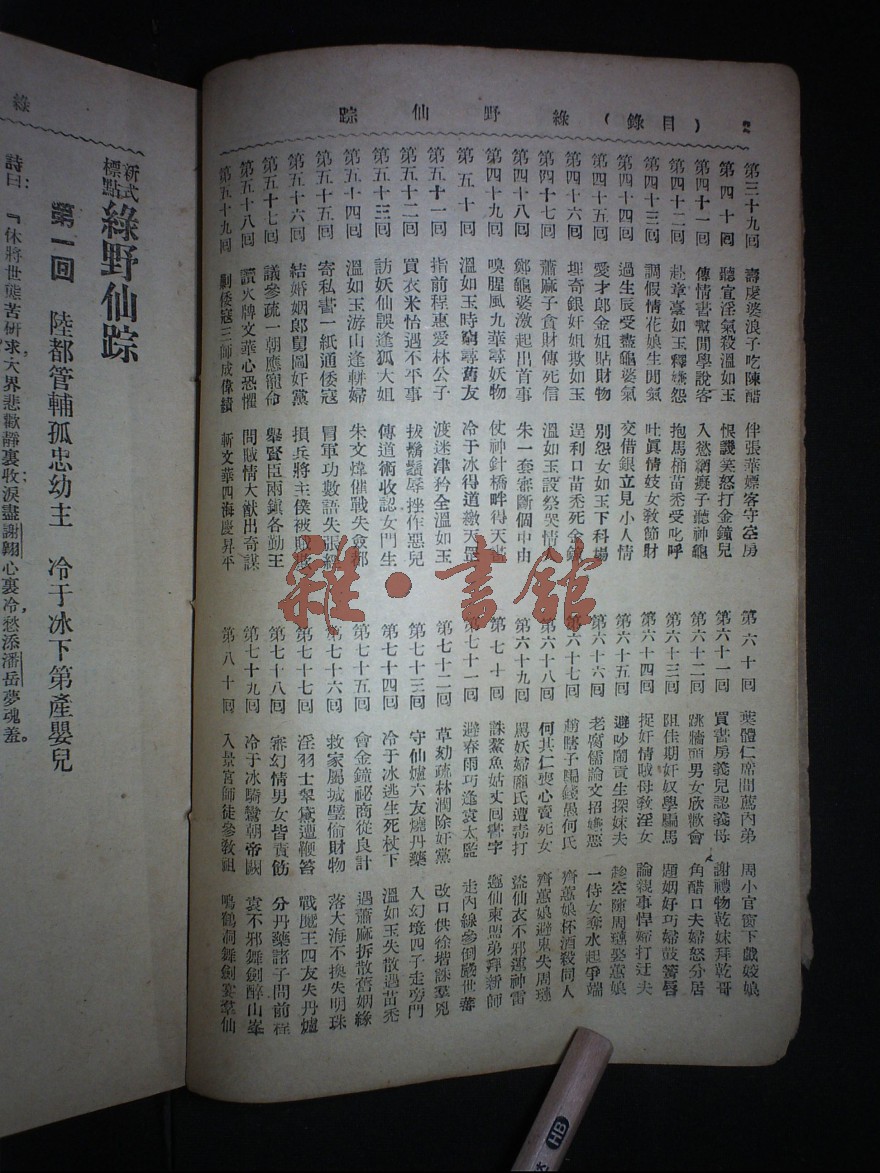 2 （目錄） 綠野仙踪
第三十九回 壽虔婆浪子吃陳醋 伴張華嫖客守空房
第四十回 聽宣淫氣殺溫如玉 恨譏笑怒打金鐘兒
第四十一回 傳情書幫閒學說客 入慾網痴子聽神龜
第四十二回 赴章臺如玉釋嫌怨 抱馬桶苗禿受叱呼
第四十三回 調假情花娘生閒氣 吐眞情妓女敎節財
第四十四回 過生辰受盡龜婆氣 交借銀立見小人情
第四十五回 愛才郎金姐貼財物 別怨女如玉下科場
第四十六回 埋奇銀奸姐欺如玉 逞利口苗禿死金鐘
第四十七回 蕭麻子貪財傳死信 溫如玉設祭哭情人
第四十八回 鄭龜婆激起出首事 朱一套審斷個中由
第四十九回 嗅腥風九華尋妖物 使神針橋畔得天書
第五十回 溫如玉時窮尋舊友 冷于冰得道繳天罡
第五十一回 指前程惠愛林公子 渡迷津矜全溫如玉
第五十二回 買衣米恰遇不平事 拔鬍鬚辱挫作惡兒
第五十三回 訪妖仙誤逢狐大姐 傳道術收認女門生
第五十四回 溫如玉游山逢蚺婦 朱文煒催戰失僉都
第五十五回 寄私書一紙通倭寇 冒軍功數語失張經
第五十六回 結婚姻郎舅圖奸黨 損兵將主僕被賊欺
第五十七回 議參疏一朝應寵命 舉賢臣兩鎭各勤王
第五十八回 讀火牌文華心恐懼 問賊情大猷出奇謀
第五十九回 剿倭寇三帥成偉績 斬文華四海慶昇平
第六十回 葉體仁席間薦內弟 周小官窗下戲姣娘
第六十一回 買書房義兒認義母 謝禮物乾妹拜乾哥
第六十二回 跳牆頭男女欣歡會 角醋口夫婦怒分居
第六十三回 阻佳期奸奴學騙馬 題姻好巧婦鼓簧唇
第六十四回 捉奸情賊母敎淫女 論親事悍婦打迂夫
第六十五回 避吵鬧貢生探妹夫 趁空隙周璉娶蕙娘
第六十六回 老腐儒論文招嫌惡 一侍女奪水起爭端
第六十七回 趙瞎子騙錢愚何氏 齊蕙娘杯酒殺同人
第六十八回 何其仁喪心賣死女 齊蕙娘避鬼失周璉
第六十九回 罵妖婦龐氏遭毒打 盜仙衣不邪運神雷
第七十回 誅鰲魚姑丈回書字 遵仙柬盟弟拜新師
第七十一回 避春雨巧逢袁太監 走內線參倒嚴世蕃
第七十二回 草劾疏林潤除奸黨 改口供徐階誅羣兇
第七十三回 守仙爐六友燒丹藥 入幻境四子走旁門
第七十四回 冷于冰逃生死杖下 溫如玉失散遇苗禿
第七十五回 會金鐘祕商從良計 遇蕭麻拆散舊姻緣
第七十六回 救家屬城璧偷財物 落大海不換失明珠
第七十七回 淫羽士翠黛遭鞭笞 戰魔王四友失丹爐
第七十八回 審幻情男女皆責飭 分丹藥諸子問前程
第七十九回 冷于冰騎鸞朝帝闕 袁不邪舞劍醉山峯
第八十回 入景宮師徒參敎祖 鳴鶴洞舞劍宴羣仙
綠
新式標點 綠野仙踪
第一回 陸都管輔孤忠幼主 冷于冰下第產嬰兒
詩曰：『休將世態苦研求，大界悲歡靜裏收，淚盡謝翺心裏冷，愁添潘岳夢魂羞。
雜·書館
HB